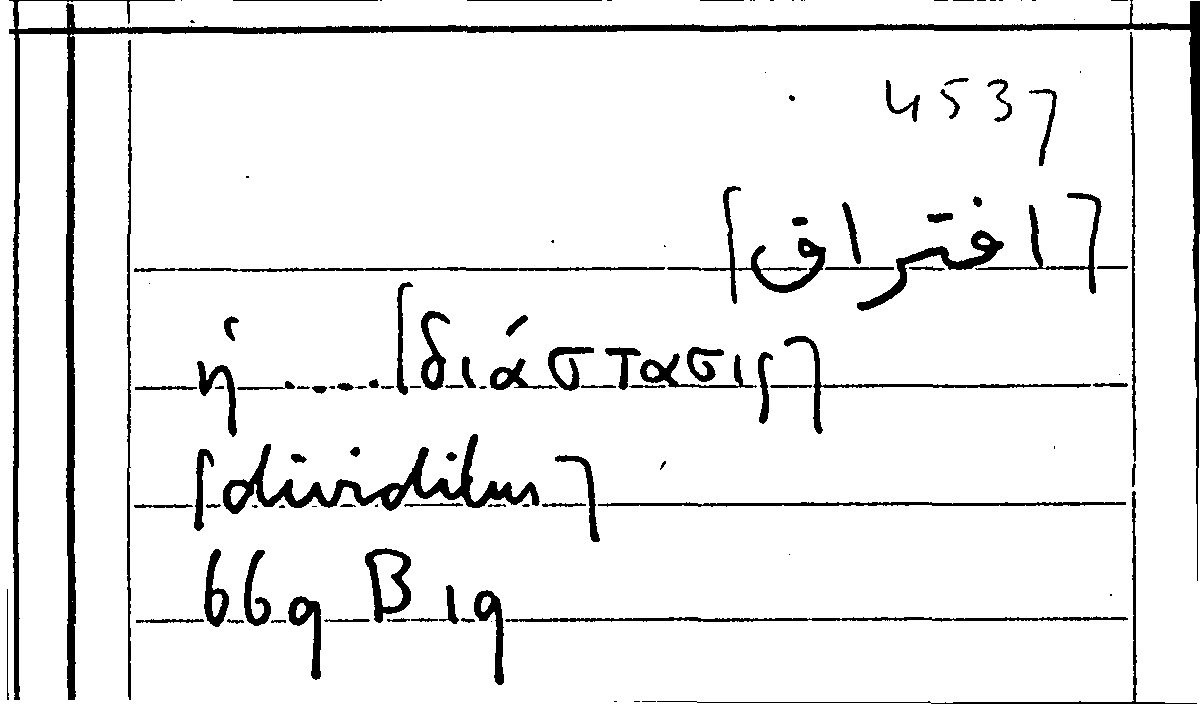 4537
[افتراق]
ἡ .... [διάστασις]
[dividitur]
669 B 19